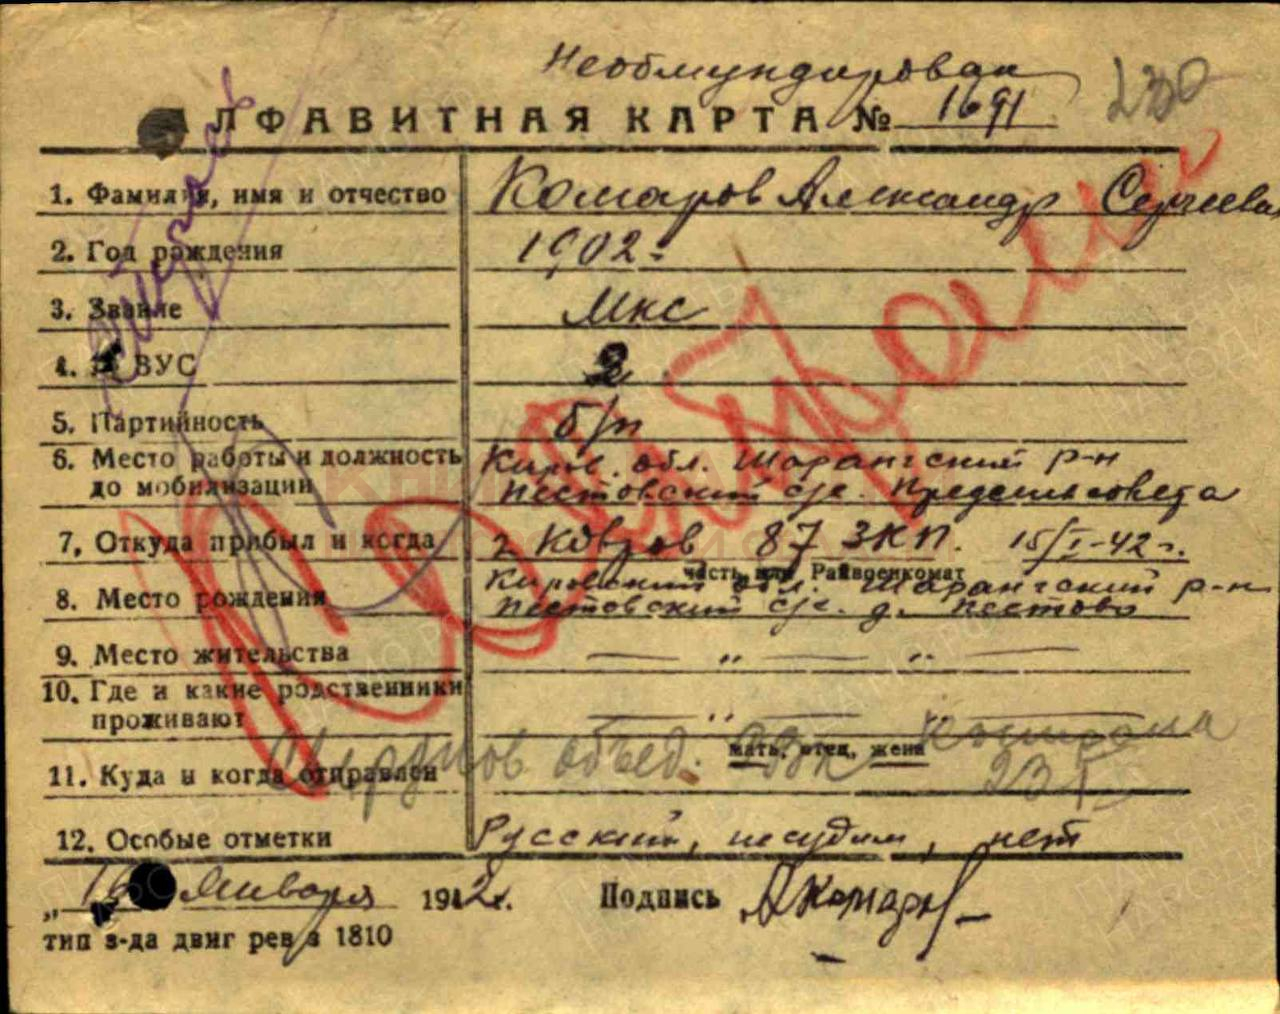 Необмундирован
АЛФАВИТНАЯ КАРТА № 1691
230
1. Фамилия, имя и отчество Комаров Александр Сергеевич
2. Год рождения 1902 г.
3. Звание мкс
4. № ВУС 2
5. Партийность б/п
6. Место работы и должность до мобилизации Киров. обл. Шарангский р-н
Пестовский с/с. Пред сельсовета
7. Откуда прибыл и когда г Ковров 87 ЗКП. 15/I-42 г.
часть или Райвоенкомат
8. Место рождения Кировский обл. Шарангский р-н
Пестовский с/с. д. Пестово
9. Место жительства — „ — „ —
10. Где и какие родственники проживают — „ — „ —
мать, отец, жена
11. Куда и когда отправлен объед. Кострома
23/I
12. Особые отметки Русский, несудим, нет
„16" января 1942 г. Подпись АКомаров
тип з-да двиг рев з 1810
Кострома
ПАМЯТЬ НАРОДА